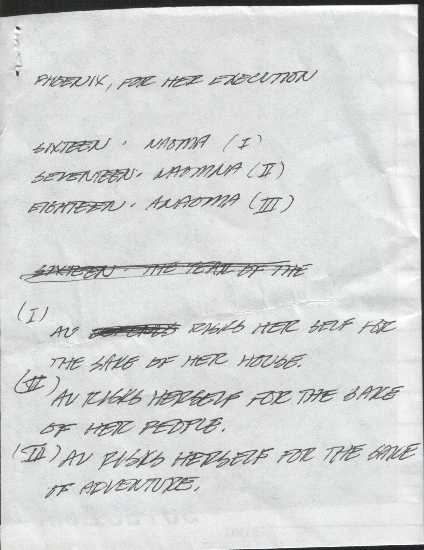 PHOENIX, FOR HER EXECUTION
SIXTEEN · NAOMIA (I)
SEVENTEEN · NAOMNIA (II)
EIGHTEEN · ANAOMIA (III)
SIXTEEN · THE OF THE
(I)
AV RISKS HER SELF FOR
THE SAKE OF HER HOUSE.
(II) AV RISKS HERSELF FOR THE SAKE
OF HER PEOPLE.
(III) AV RISKS HERSELF FOR THE SAKE
OF ADVENTURE.